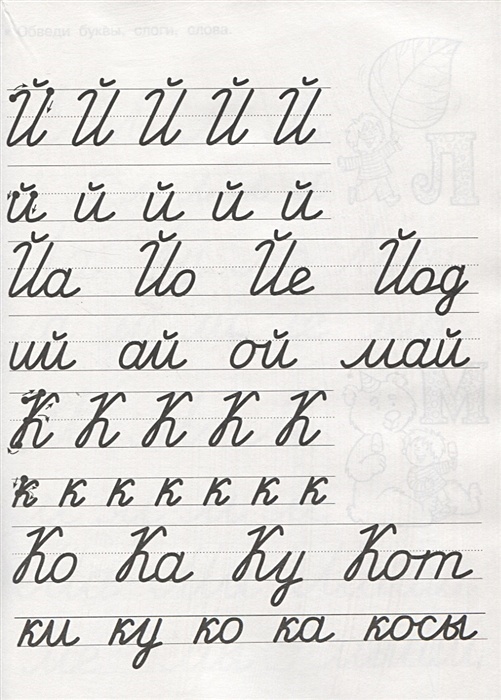 Обведи буквы, слоги, слова.
Й Й Й Й Й
й й й й й
Йа Йо Йе Йод
ий ай ой май
К К К К К
к к к к к к к
Ко Ка Ку Кот
ки ку ко ка косы
Л
М